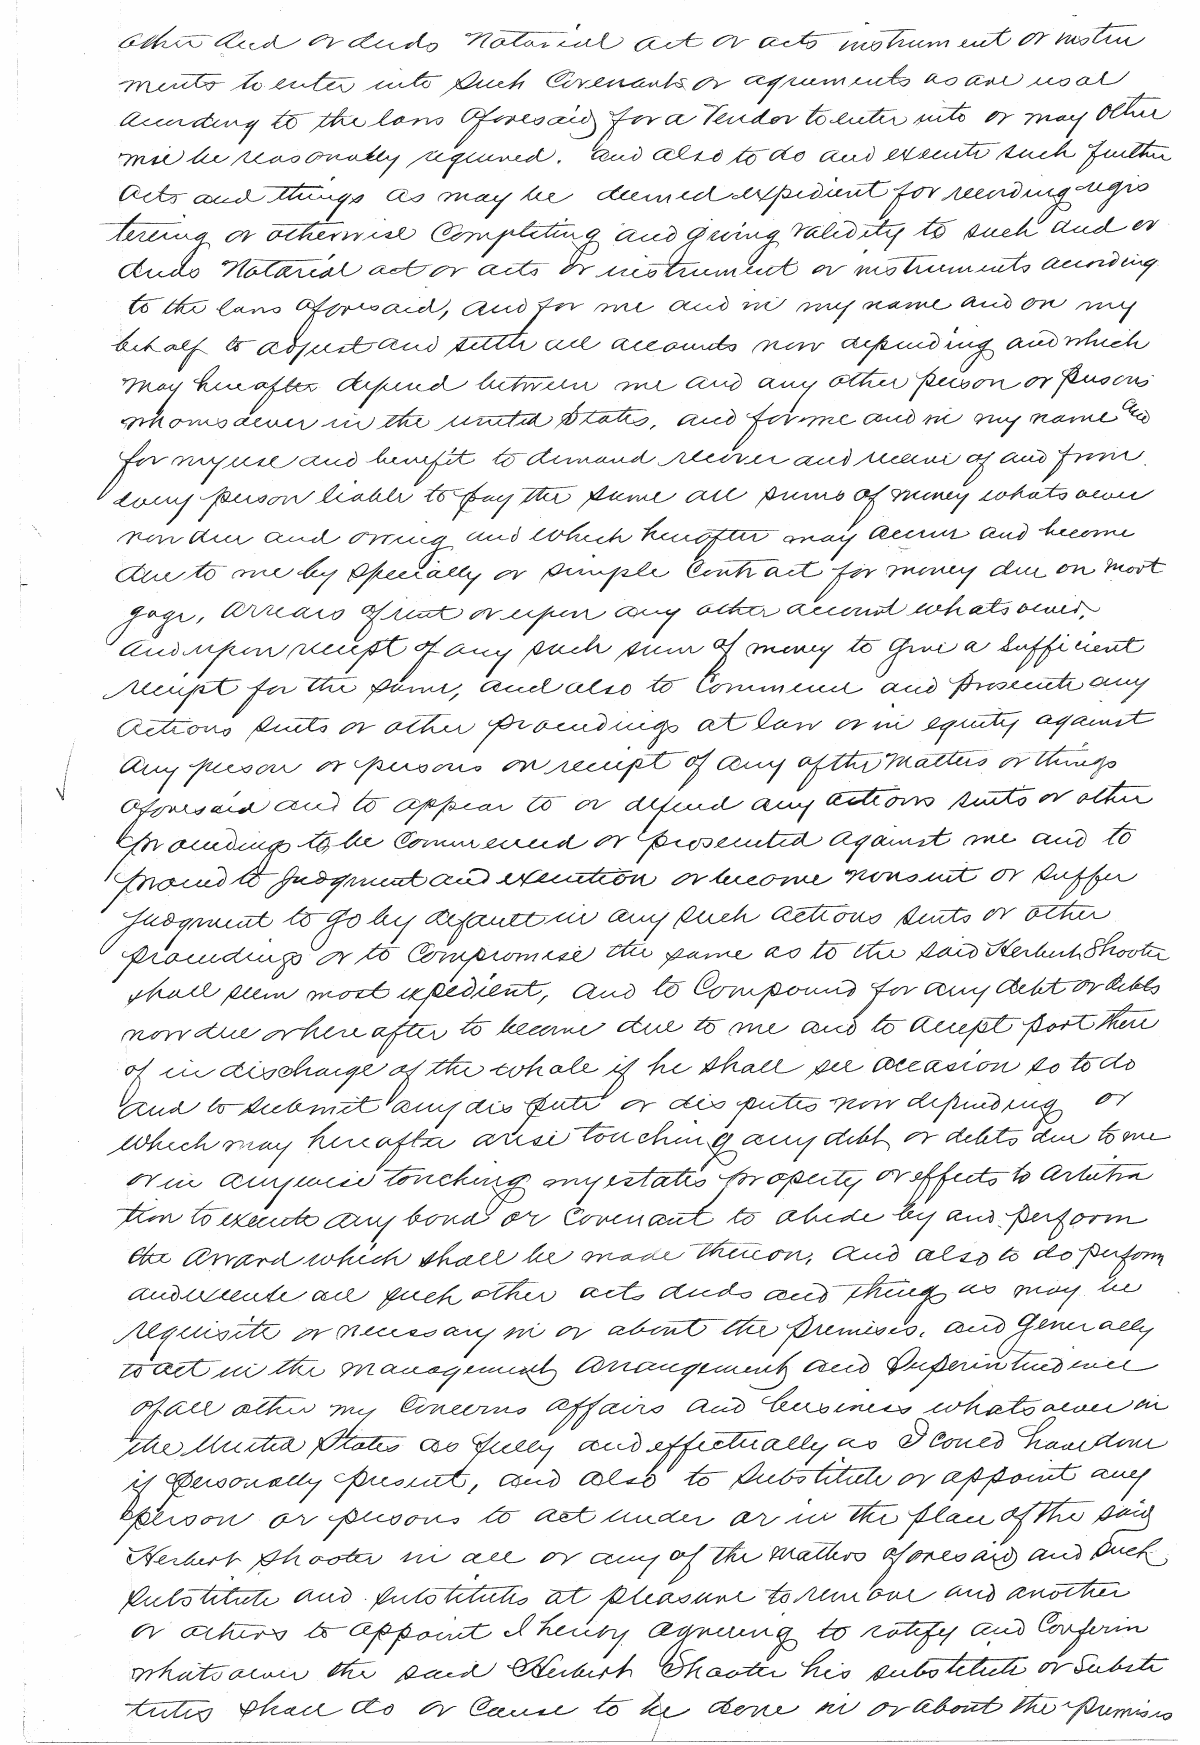 other deed or deeds Notarial act or acts instrument or instru
ments to enter into such Covenants or agreements as are usal
according to the laws aforesaid for a Vendor to enter into or may other
wise be reasonably required. and also to do and execute such further
acts and things as may be deemed expedient for recording regis
tereing or otherwise Completing and giving validity to such deed or
deeds Notarial act or acts or instrument or instruments according
to the laws aforesaid, and for me and in my name and on my
behalf to adjust and settle all accounts now depending and which
may hereafter depend between me and any other person or persons
whomsoever in the united States, and for me and in my name and
for my use and benefit to demand recover and receive of and from
every person liable to pay the same all sums of money whatsoever
now due and owing and which hereafter may accrue and become
due to me by specially or simple Contract for money due on mort
gage, arrears of rent or upon any other account whatsoever,
and upon receipt of any such sum of money to Give a Sufficient
receipt for the same, and also to Commence and prosecute any
actions suits or other proceedings at law or in equity against
any person or persons on receipt of any of the Matters or things
aforesaid and to appear to or defend any actions suits or other
proceedings to be Commenced or prosecuted against me and to
proceed to Judgment and execution or become nonsuit or suffer
Judgment to go by default in any such actions suits or other
proceedings or to Compromise the same as to the said Herbert Shooter
shall seem most expedient, and to Compound for any debt or debts
now due or here after to become due to me and to accept part there
of in discharge of the whole if he shall see occasion so to do
and to submit any dispute or disputes now depending or
which may hereafter arise touching any debt or debts due to me
or in anywise touching my estates property or effects to arbitra
tion to execute any bond or Covenant to abide by and perform
the award which shall be made thereon, and also to do perform
and execute all such other acts deeds and things as may be
requisite or necessary in or about the premises. and Generally
to act in the management arrangement and Superintendence
of all other my Concerns affairs and business whatsoever in
the United States as fully and effectually as I could have done
if personally present, and also to substitute or appoint any
person or persons to act under or in the place of the said
Herbert Shooter in all or any of the matters aforesaid and such
substitute and substitutes at pleasure to remove and another
or others to appoint I hereby agreeing to ratify and Confirm
whatsoever the said Herbert Shooter his substitute or Substi
tutes shall do or Cause to be done in or about the premises